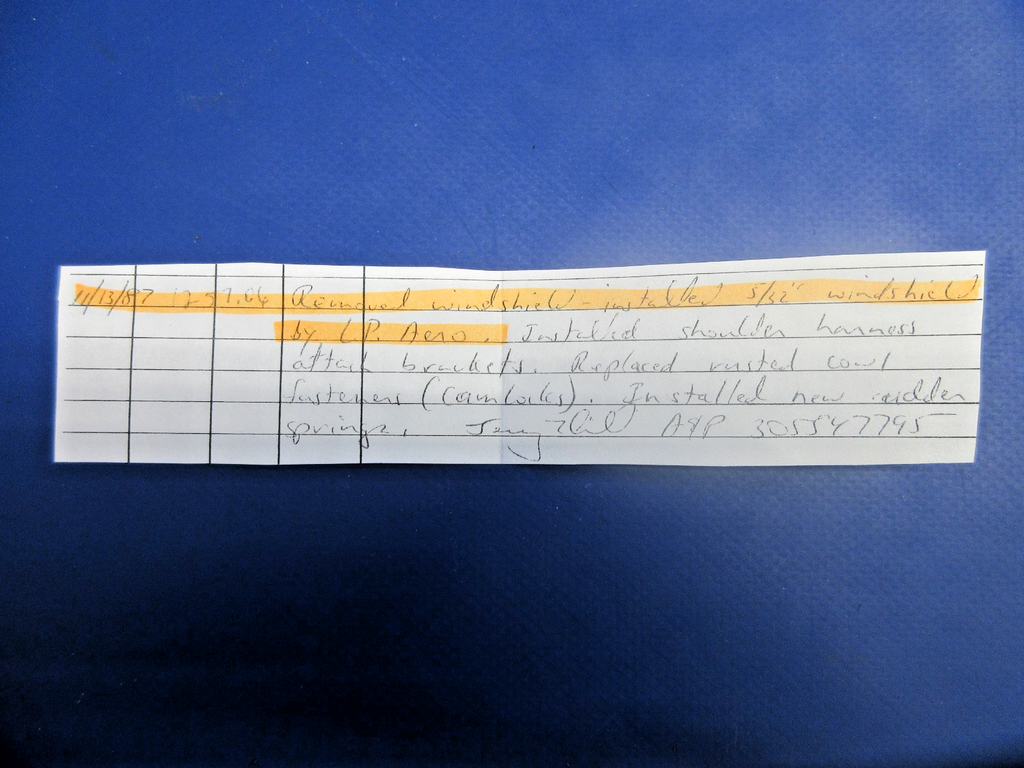 11/13/87 1297.66 Removed windshield - installed 5/32" windshield
by L.P. Aero. Installed shoulder harness
attach brackets. Replaced rusted cowl
fasteners (Camlocks). Installed new rudder
springs. A&P 305547795